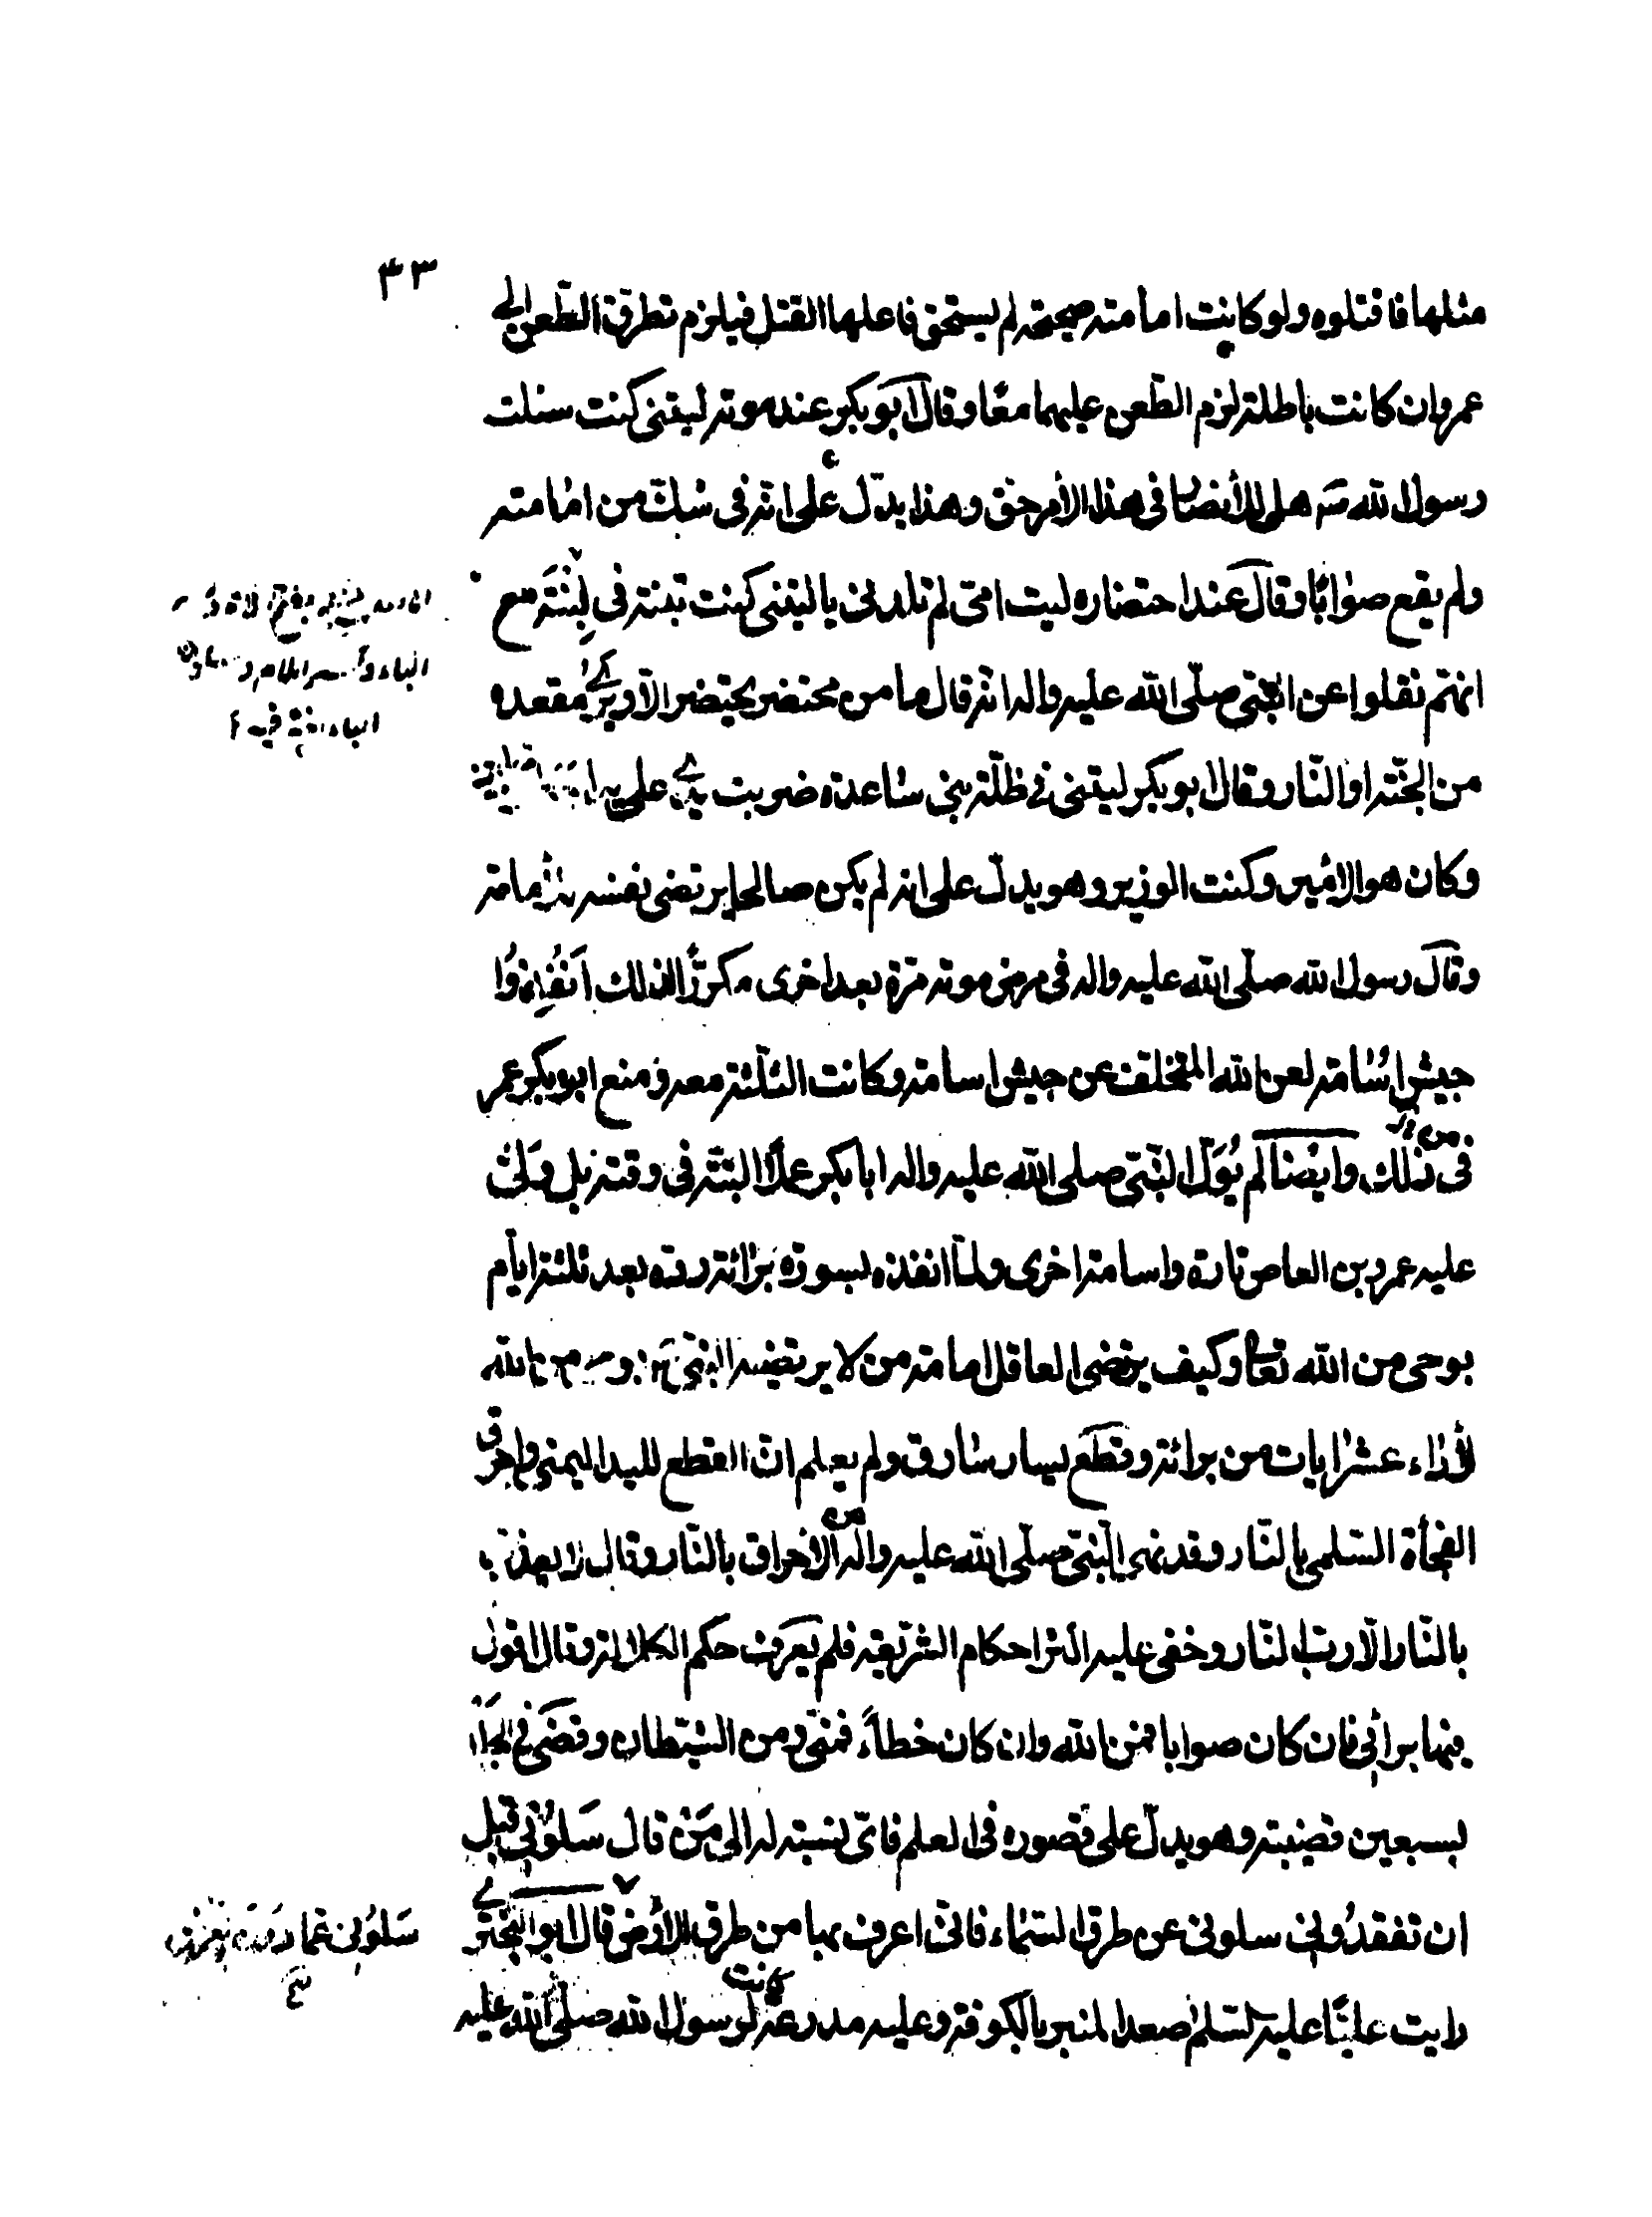 ٣٣
مثلها فاقتلوه ولو كانت امامته صحيحة لم يستحق فاعلها القتل فيلزم تطرق الطّعن الى
عمر وان كانت باطلة لزم الطّعن عليهما معًا وقال ابو بكر عند موته ليتنى كنت سئلت
رسول الله ص هل للأنصار فى هذا الامر حق وهذا يدلّ على انّه فى شك من امامته
ولم يقع صوابًا وقال عند احتضاره ليت امّى لم تلدنى يا ليتنى كنت تبنة فى لبنة مع
انهم نقلوا عن النبى صلّى الله عليه واله انّه قال ما من محتضر يحتضر الّا ويرى مقعده
من الجنّة او النّار وقال ابو بكر ليتنى فى ظلّة بنى ساعدة ضربت يدى على يد
وكان هو الامير وكنت الوزير وهو يدل على انه لم يكن صالحا يرتضى نفسه للامامة
وقال رسول الله صلّى الله عليه واله فى مرض موته مرّة بعد اخرى مكررًا لذلك انفذوا
جيش اسامة لعن الله المتخلف عن جيش اسامة وكانت الثلثة معه ومنع ابو بكر عمر
من فى ذلك وايضا لم يُوَلّ النّبى صلى الله عليه واله ابا بكر عملًا البتّة فى وقته بل ولّى
عليه عمرو بن العاص تارة واسامة اخرى ولمّا انفذه بسورة برائة ردّه بعد ثلثة ايّام
بوحى من الله تعالى وكيف يرتضى العاقل امامة من لا يرتضيه النبى بوحى من الله
لأداء عشر ايات من برائة وقطع يسار سارق ولم يعلم انّ القطع لليد اليمنى واحرق
الفجأة السّلمى بالنّار وقد نهى النبىّ صلّى الله عليه واله من الاحراق بالنّار وقال لا يعذب
بالنّار الّا ربّ النّار وخفى عليه اكثر احكام الشّريعة فلم يعرف حكم الكلالة وقال اقول
فيها برأيى فان كان صوابا فمن الله وان كان خطأً فمنّى ومن الشّيطان وقضى فى الجدّ
بسبعين قضيّة وهو يدلّ على قصوره فى العلم فاىّ نسبة له الى من قال سَلُونى قبل
ان تفقدُونى سلونى عن طرق السّماء فانّى اعرف بها من طرق الأرض قال ابو البخترى
رايت عليًّا عليه السّلم صعد المنبر بالكوفة وعليه مدرعة كانت لرسول الله صلّى الله عليه
الباء
سَلُونى عمّا